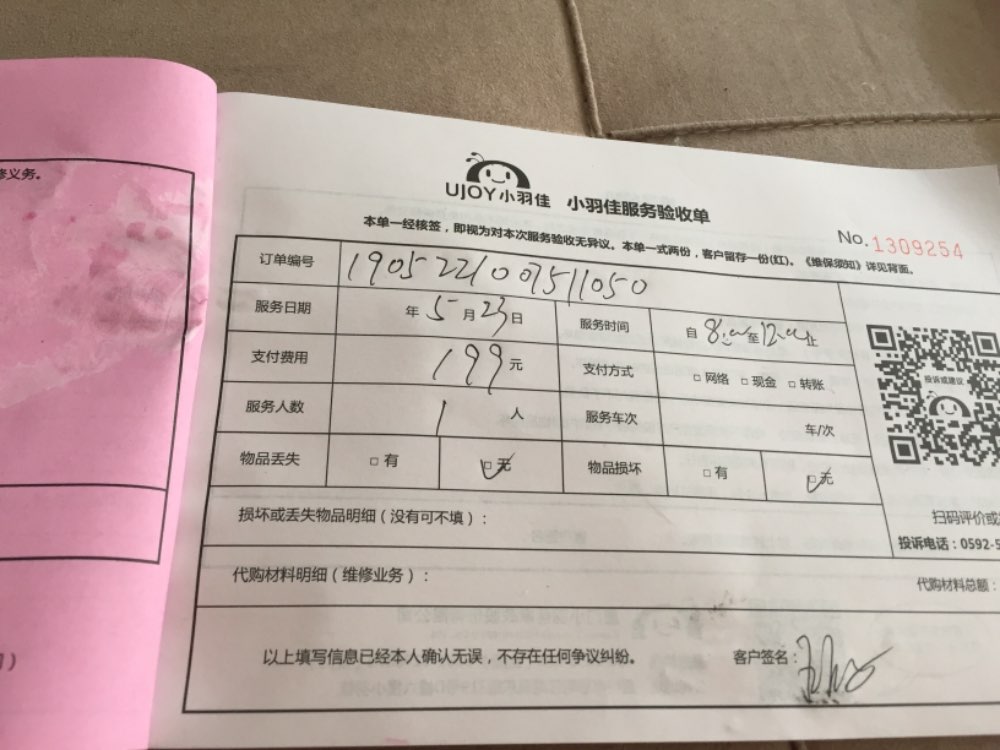 修义务。
UJOY小羽佳 小羽佳服务验收单
本单一经核签，即视为对本次服务验收无异议。本单一式两份，客户留存一份(红)。《维保须知》详见背面。
No.1309254
订单编号 1905221007511050
服务日期 年 5 月 23 日 服务时间 自 8:00 至 12:00 止
支付费用 199 元 支付方式 □ 网络 □ 现金 □ 转账
服务人数 1 人 服务车次 车/次
物品丢失 □ 有 □ 无 物品损坏 □ 有 □ 无
投诉或建议
损坏或丢失物品明细（没有可不填）：
扫码评价或
投诉电话：0592-5
代购材料明细（维修业务）： 代购材料总额：
以上填写信息已经本人确认无误，不存在任何争议纠纷。 客户签名：